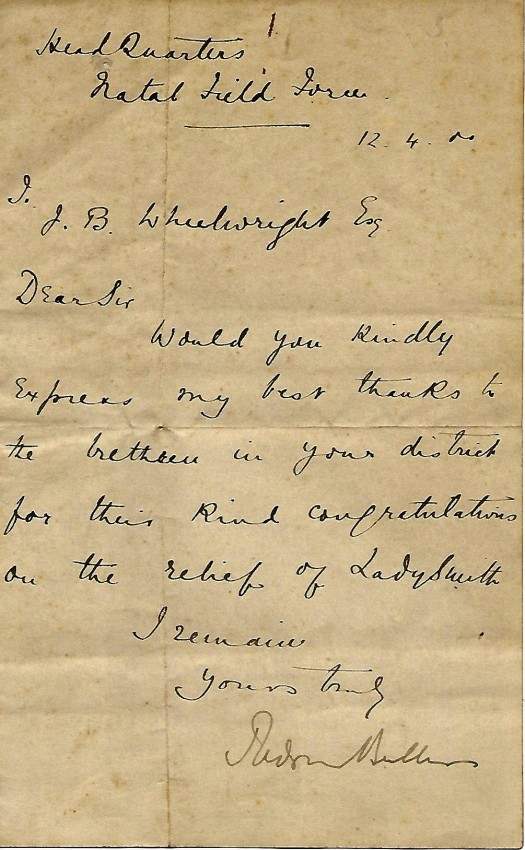 1
Head Quarters
Natal Field Force.
12. 4. 00
To.
J. B. Wheelwright Esq
Dear Sir
Would you kindly
Express my best thanks to
the brethren in your district
for their kind congratulations
on the relief of LadySmith
I remain
Yours truly
Redvers Buller